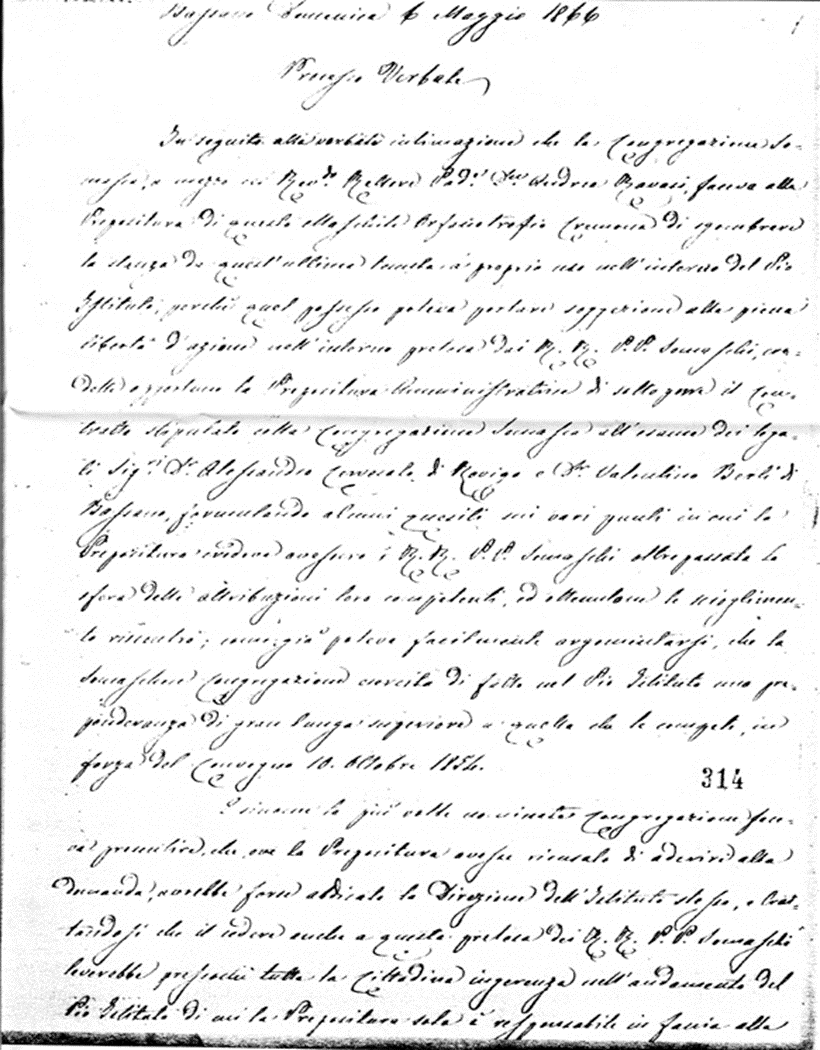 Bassano Domenica 6 Maggio 1866
Processo Verbale
In seguito alla verbale intimazione che la Congregazione So-
masca, a mezzo Rev.do Rettore Pad.e D.n Andrea Ravasi, faceva alla
Prepositura di questo Maschile Orfanotrofio Cremona di sgomberare
la stanza da quest'ultima tenuta a proprio uso nell'interno del Pio
Istituto, perchè quel possesso poteva portare soggezione alla piena
libertà d'azione nell'interno pretesa dai R. R. P.P. Somaschi, cre-
dette opportuno la Prepositura Amministratrice di sottoporre il Con-
tratto stipulato colla Congregazione Somasca all'esame dei lega-
li Sig.i D.r Alessandro Cervesato di Rovigo e D.r Valentino Berti di
Bassano, formulando alcuni quesiti sui vari punti in cui la
Prepositura credeva avessero i R. R. P. P. Somaschi oltrepassata la
sfera delle attribuzioni loro competenti, ed ottenutone lo scioglimen-
to risultò; come già poteva facilmente argomentarsi, che la
Somasca Congregazione esercita di fatto nel Pio Istituto una pre-
ponderanza di gran lunga superiore a quella che le compete, in
forza del Convegno 10. Ottobre 1854.
314
Siccome la più volte nominata Congregazione face-
va presentire, che, ove la Prepositura avesse ricusato di aderire alla
domanda, avrebbe forse abdicato la Direzione dell'Istituto stesso, e trat-
tandosi che il cedere anche a questa pretesa dei R. R. P. P. Somaschi
leverebbe pressochè tutta la Cittadina ingerenza nell'andamento del
Pio Istituto di cui la Prepositura sola è responsabile in faccia alla